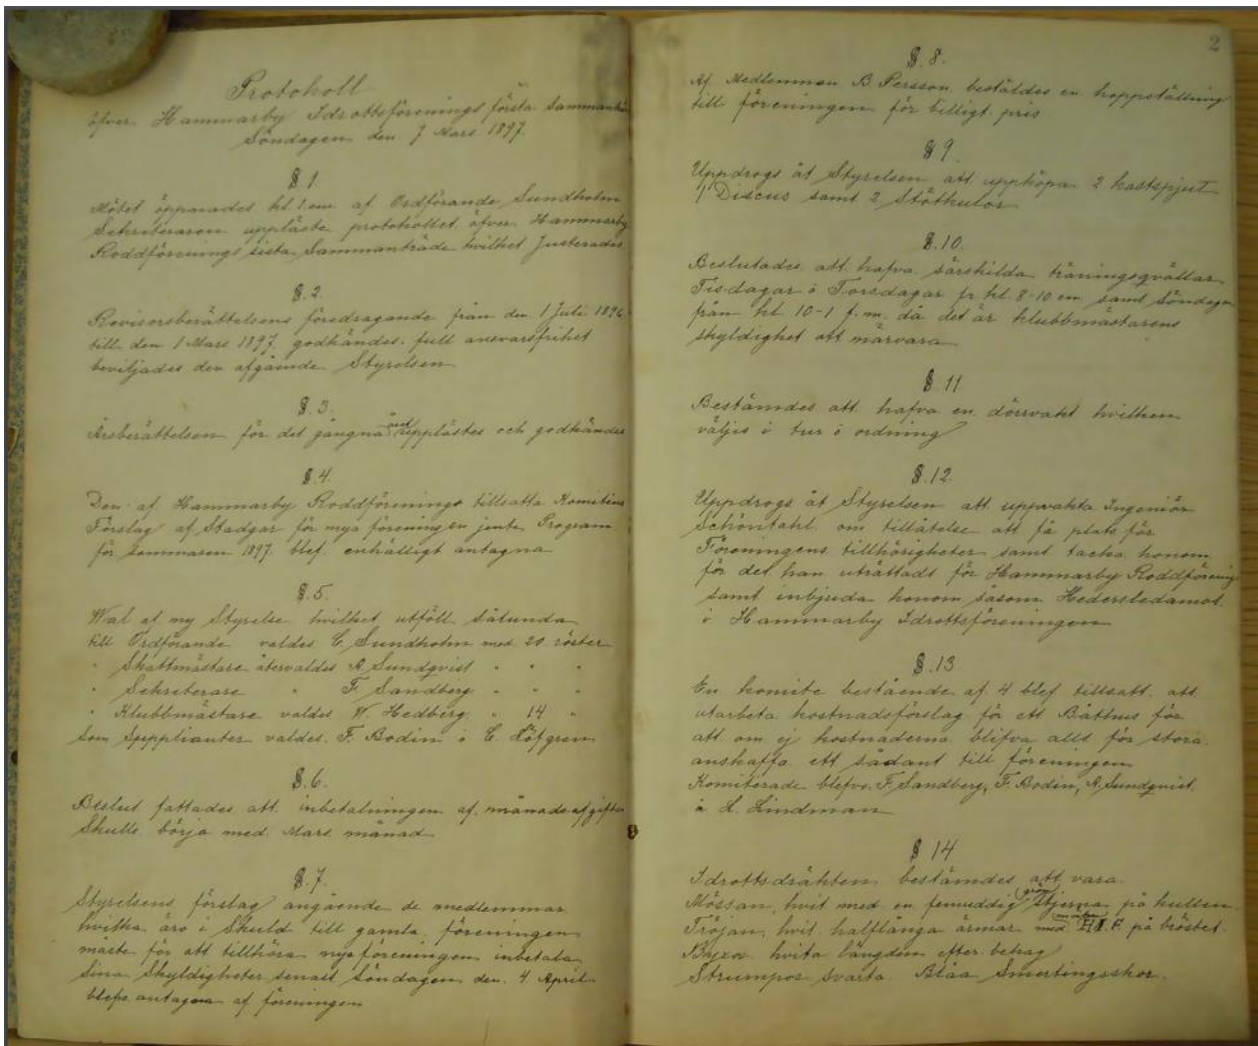 Protokoll
öfver Hammarby Idrottsförenings första Sammanträde
Söndagen den 7 Mars 1897.
§.1.
Mötet öppnades kl. 1. em. af Ordförande Sundholm
Sekreteraren uppläste protokollet öfver Hammarby
Roddförenings sista Sammanträde hvilket Justerades
§.2.
Revisorsberättelsens föredragande från den 1 Juli 1896
till den 1 Mars 1897. godkändes. full ansvarsfrihet
beviljades den afgående Styrelsen
§.3.
Årsberättelsen för det gångna året upplästes och godkändes
§.4.
Den af Hammarby Roddförenings tillsatta Komitens
Förslag af Stadgar för nya föreningen jemte Program
för sommaren 1897. blef enhälligt antagna
§.5.
Wal af ny Styrelse hvilket utföll sålunda
till Ordförande valdes C. Sundholm med 20. röster
" Skattmästare återvaldes A. Sundqvist " " "
" Sekreterare " F. Sandberg " " "
" Klubbmästare valdes W. Hedberg " 14 "
Som Suppleanter valdes F. Bodin & C. Löfgren
§.6.
Beslut fattades att inbetalningen af månadsafgifter
Skulle börja med Mars månad
§.7.
Styrelsens förslag angående de medlemmar
hvilka äro i Skuld till gamla föreningen
måste för att tillhöra nya föreningen inbetala
Sina Skyldigheter senast Söndagen den 4 April
blefvo antagna af föreningen
2
§.8.
Af Medlemmen B Persson beställdes en hoppställning
till föreningen för billigt pris
§9.
Uppdrogs åt Styrelsen att uppköpa 2 kastspjut
1 Discus samt 2 Stötkulor
§.10.
Beslutades att hafva särskilda träningsqvällar
Tisdagar & Torsdagar fr kl. 8-10 em samt Söndagar
från kl. 10-1 f.m. då det är klubbmästarens
skyldighet att närvara
§.11
Bestämdes att hafva en dörrvakt hvilken
väljes i tur & ordning
§.12.
Uppdrogs åt Styrelsen att uppvakta Ingeniör
Schöntahl om tillåtelse att få plats för
Föreningens tillhörigheter samt tacka honom
för det han uträttadt för Hammarby Roddförening
samt inbjuda honom såsom Hedersledamot
i Hammarby Idrottsföreningen
§.13
En komite bestående af 4 blef tillsatt att
utarbeta kostnadsförslag för ett Båthus för
att om ej kostnaderna blifva allt för stora
anskaffa ett sådant till föreningen
Komiterade blefvo F. Sandberg, F. Bodin, A. Sundqvist
& L. Lindman
§ 14
Idrottsdräkten bestämdes att vara
Mössan, hvit med en femuddig grön Stjerna på kullen
Tröjan, hvit halflånga ärmar med H.I.F. på bröstet.
Byxor hvita längden efter behag
Strumpor Svarta. Blåa Smertingsskor.